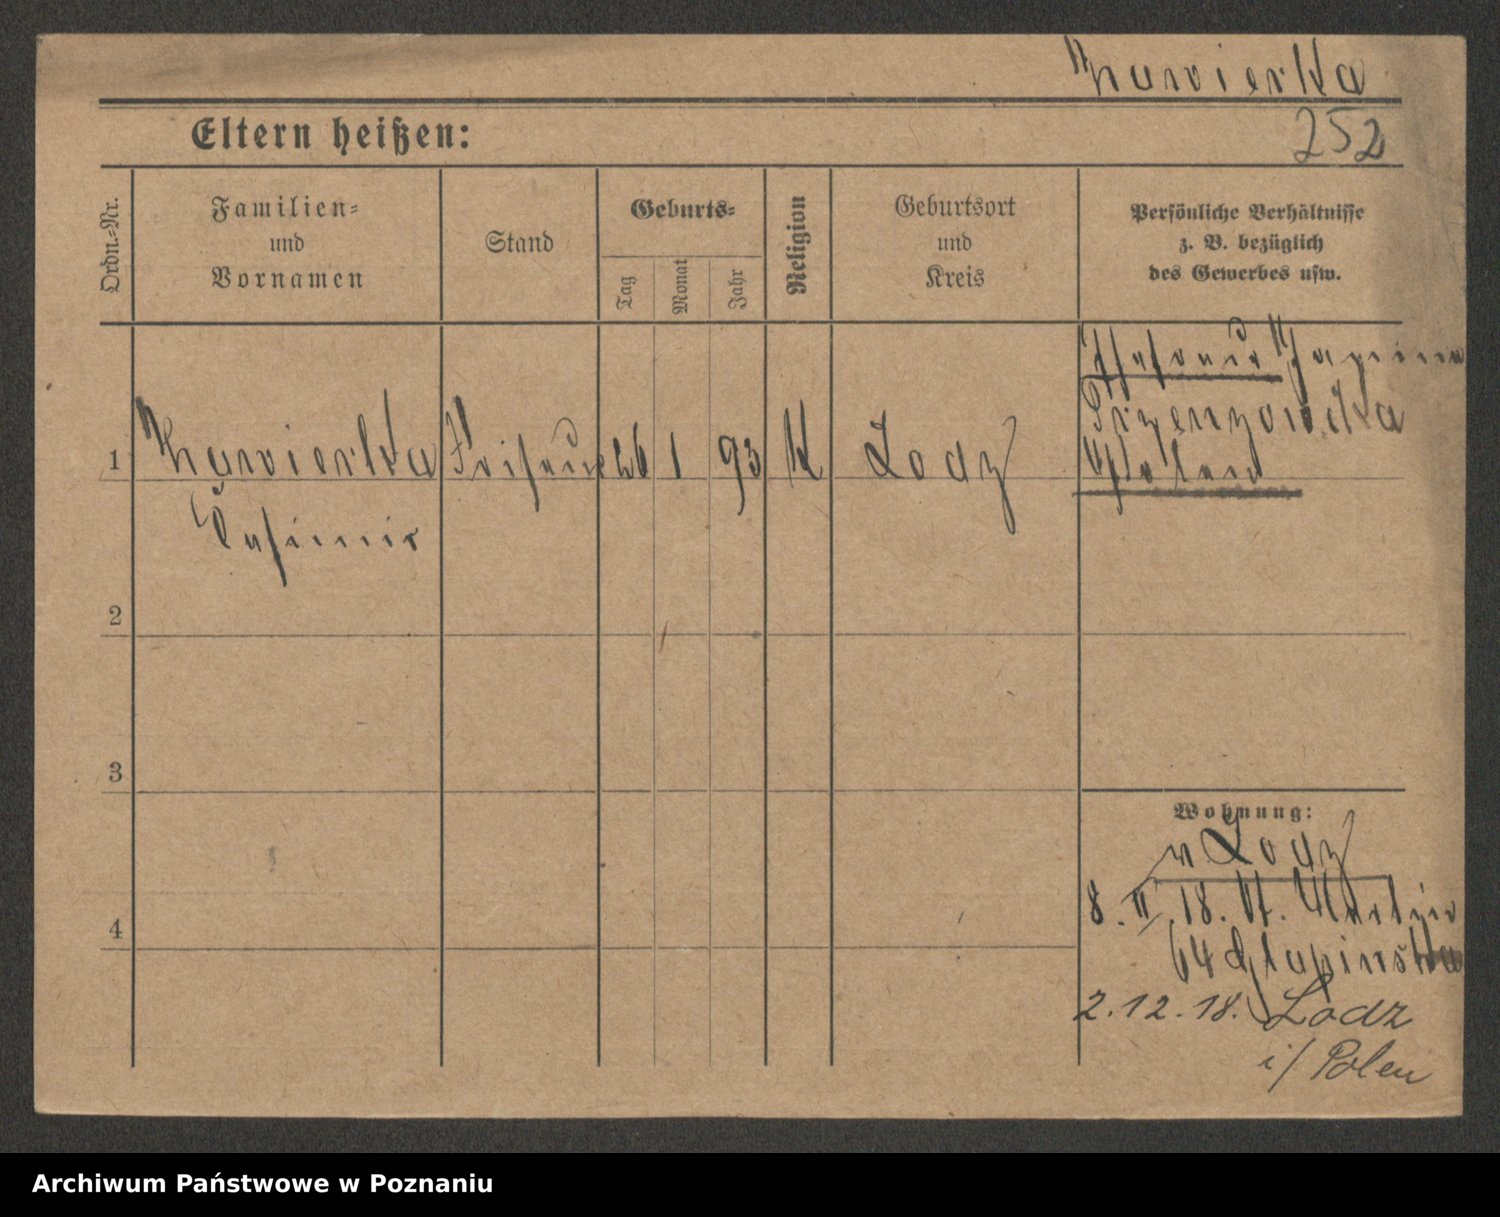 252
Eltern heißen:
Ordn.-Nr.
Familien-
und
Vornamen
Stand
Geburts-
Tag
Monat
Jahr
Religion
Geburtsort
und
Kreis
Persönliche Verhältnisse
z. B. bezüglich
des Gewerbes usw.
1 Friseur 26 1 93 K Lodz
Casimir
2
3
4
Wohnung:
v Lodz
8. II. 18. St. Martin
64 Glapinska
2.12.18. Lodz
i/ Polen
Archiwum Państwowe w Poznaniu